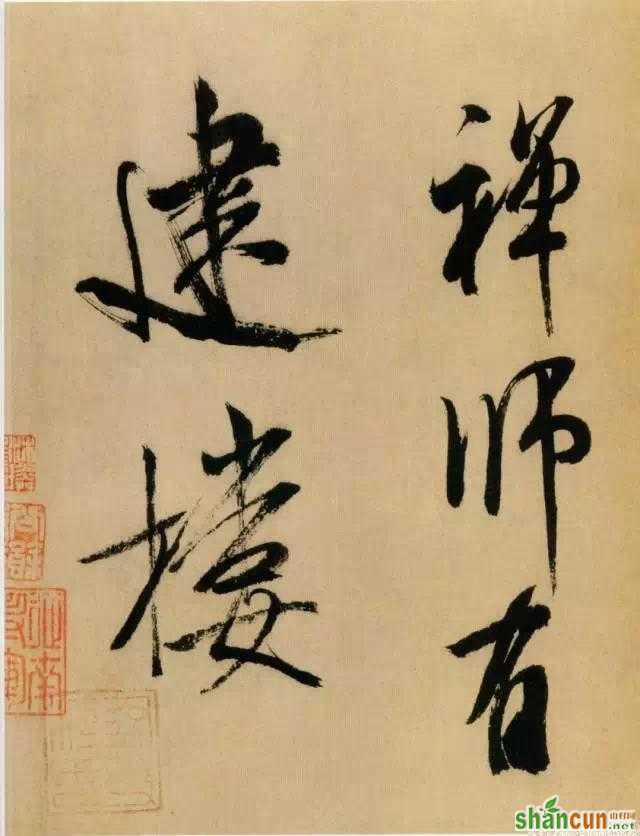 禪師有
建樓
shancun
.net